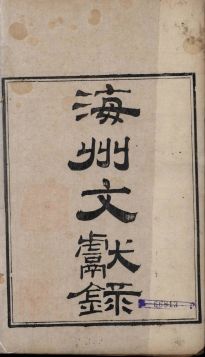 海州文獻錄